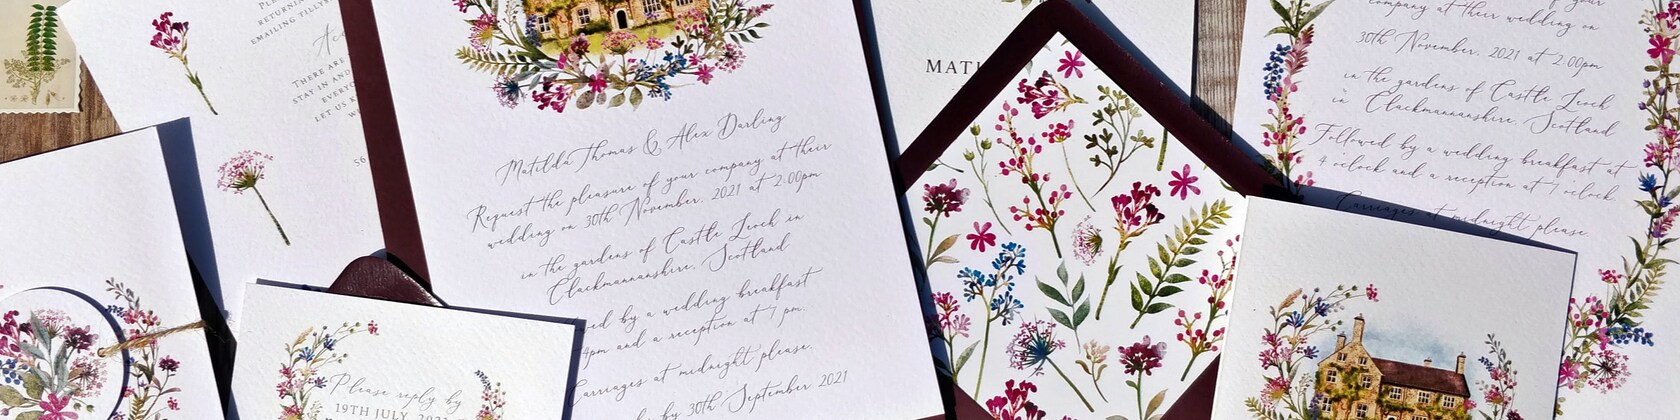 RETURNING
EMAILING TILLYS
THERE ARE
STAY IN AND
EVERYO
LET US K
56
Please reply by
19TH JULY, 2021
Matilda Thomas & Alex Darling
Request the pleasure of your company at their
wedding on 30th November, 2021 at 2.00pm
in the gardens of Castle Leoch in
Clackmannanshire, Scotland
ed by a wedding breakfast
4pm and a reception at 7 pm.
Carriages at midnight please.
by 30th September 2021
MATI
of your
company at their wedding on
30th November, 2021 at 2.00pm
in the gardens of Castle Leoch
in Clackmannanshire, Scotland
Followed by a wedding breakfast at
4 oclock and a reception at 7 oclock.
Carriages at midnight please.